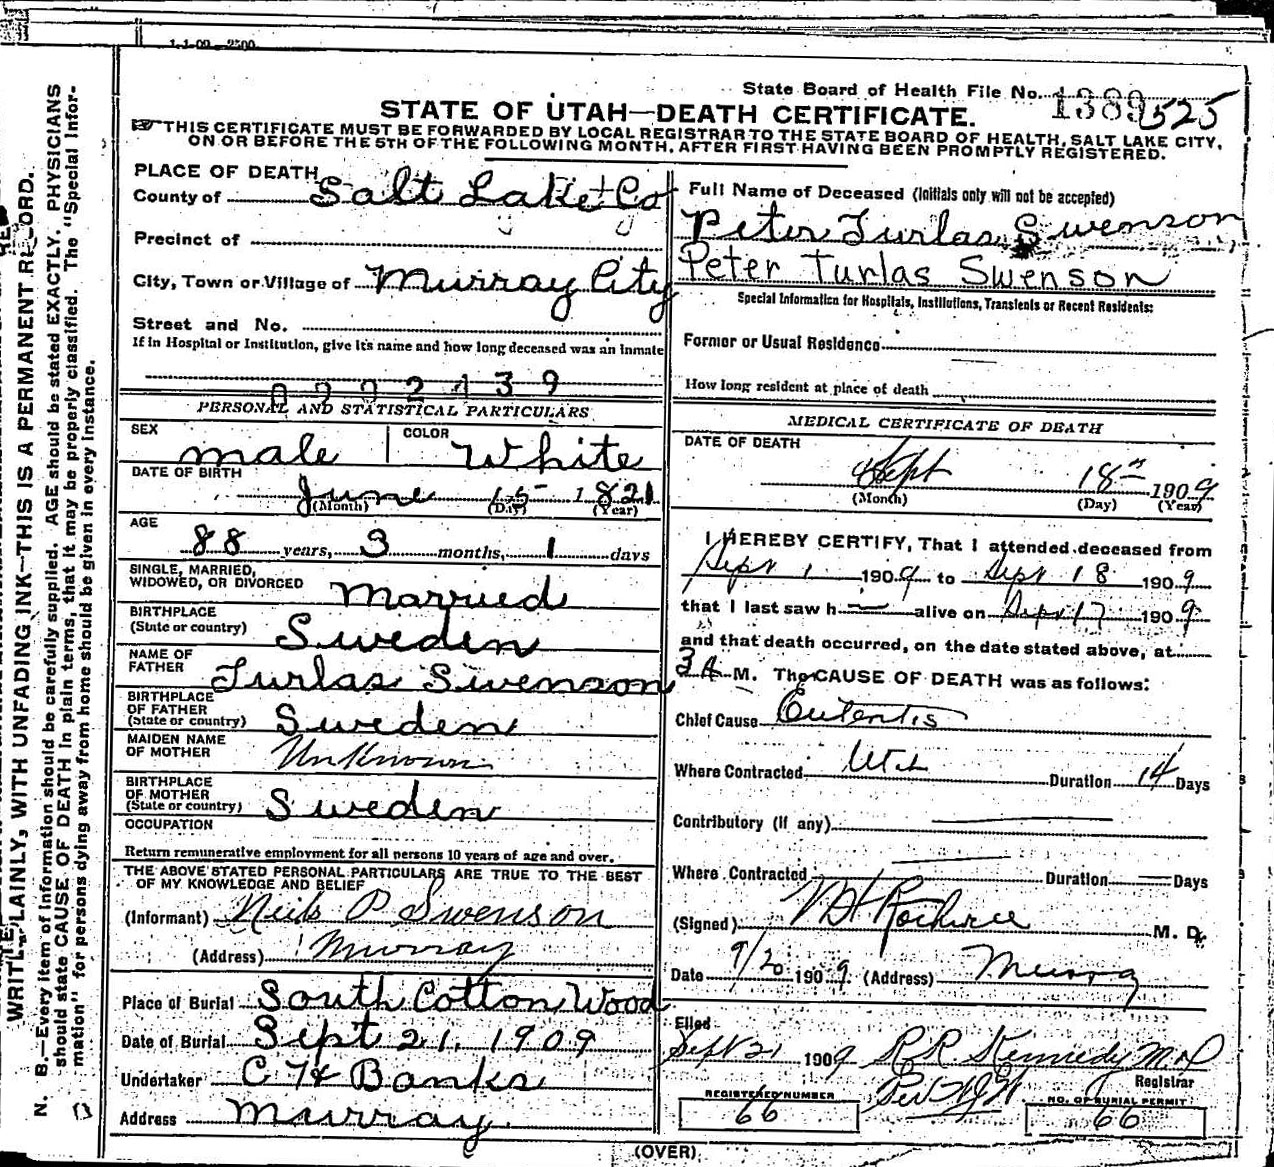 1-1-09—2500
State Board of Health File No. 1389 525
STATE OF UTAH—DEATH CERTIFICATE.
THIS CERTIFICATE MUST BE FORWARDED BY LOCAL REGISTRAR TO THE STATE BOARD OF HEALTH, SALT LAKE CITY,
ON OR BEFORE THE 5TH OF THE FOLLOWING MONTH, AFTER FIRST HAVING BEEN PROMPTLY REGISTERED.
PLACE OF DEATH
County of Salt Lake Co
Precinct of
City, Town or Village of Murray City
Street and No.
If in Hospital or Institution, give its name and how long deceased was an inmate
0202439
PERSONAL AND STATISTICAL PARTICULARS
SEX male COLOR White
DATE OF BIRTH
June 15 1821
(Month) (Day) (Year)
AGE
88 years, 3 months, 1 days
SINGLE, MARRIED,
WIDOWED, OR DIVORCED Married
BIRTHPLACE
(State or country) Sweden
NAME OF
FATHER Turlas Swenson
BIRTHPLACE
OF FATHER
(State or country) Sweden
MAIDEN NAME
OF MOTHER Unknown
BIRTHPLACE
OF MOTHER
(State or country) Sweden
OCCUPATION
Return remunerative employment for all persons 10 years of age and over.
THE ABOVE STATED PERSONAL PARTICULARS ARE TRUE TO THE BEST
OF MY KNOWLEDGE AND BELIEF
(Informant) Neils P Swenson
(Address) Murray
Place of Burial South Cotton Wood
Date of Burial Sept 21, 1909
Undertaker C H Banks
Address Murray.
Full Name of Deceased (Initials only will not be accepted)
Peter Turlas Swenson
Peter Turlas Swenson
Special Information for Hospitals, Institutions, Transients or Recent Residents:
Former or Usual Residence
How long resident at place of death
MEDICAL CERTIFICATE OF DEATH
DATE OF DEATH
Sept 18th 1909
(Month) (Day) (Year)
I HEREBY CERTIFY, That I attended deceased from
Sept 1 1909 to Sept 18 1909
that I last saw h— alive on Sept 17 1909
and that death occurred, on the date stated above, at
3 A M. The CAUSE OF DEATH was as follows:
Chief Cause
Where Contracted Utah Duration 14 Days
Contributory (if any)
Where Contracted — Duration — Days
(Signed) M. D.
Date 9/20 1909 (Address) Murray
Filed
Sept 21 1909 R R Kennedy M.D
Registrar
Per
REGISTERED NUMBER
66
NO. OF BURIAL PERMIT
66
(OVER)
WRITE PLAINLY, WITH UNFADING INK—THIS IS A PERMANENT RECORD.
N. B.—Every item of information should be carefully supplied. AGE should be stated EXACTLY. PHYSICIANS
should state CAUSE OF DEATH in plain terms, that it may be properly classified. The "Special Infor-
mation" for persons dying away from home should be given in every instance.